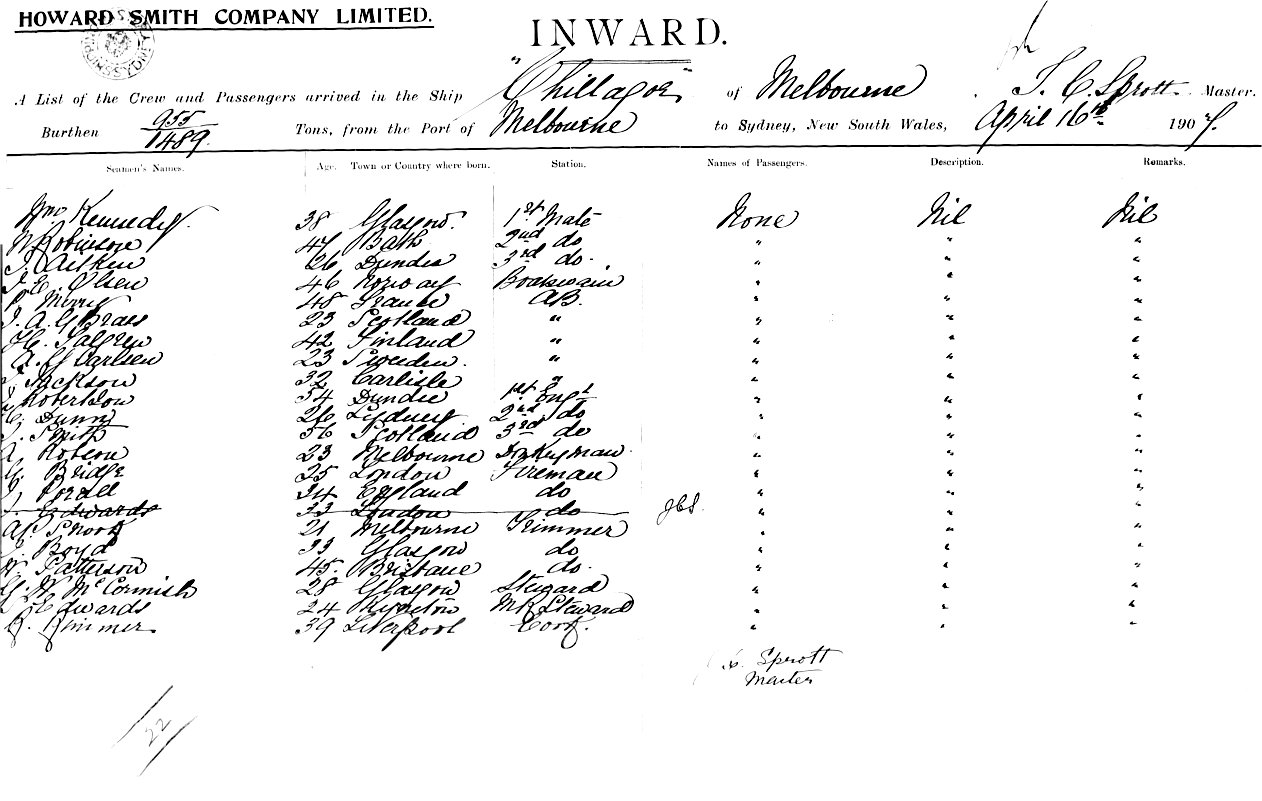 HOWARD SMITH COMPANY LIMITED.
INWARD.
A List of the Crew and Passengers arrived in the Ship "Chillagoe" of Melbourne, T. C. Sprott Master.
Burthen 955/1489 Tons, from the Port of Melbourne to Sydney, New South Wales, April 16th 1907.
Seamen's Names. Age. Town or Country where born. Station. Names of Passengers. Description. Remarks.
Wm Kennedy. 38 Glasgow. 1st Mate None Nil Nil
W Robinson 47 Bath 2nd do " " "
J. Aitken 26 Dundee 3rd do. " " "
J. E. Olsen 46 Norway Boatswain " " "
P. Merry 48 France AB. " " "
J. A. G Braes 23 Scotland " " " "
H. Salgren 42 Finland " " " "
A. G Carlsen 23 Sweden. " " " "
Jackson 32 Carlisle " " " "
Robertson 54 Dundee 1st Engr " " "
Dunn 26 Sydney 2nd do " " "
J. Smith 36 Scotland 3rd do " " "
A. Robson 23 Melbourne Donkeyman " " "
G. Bridge 35 London Fireman " " "
34 England do " " "
J. Edwards 33 London do " " "
A. P. Snook 21 Melbourne Trimmer " " "
Boyd 33 Glasgow do " " "
W. Patterson 45. Brisbane do. " " "
G. W. McCormish 28 Glasgow Steward " " "
J. Edwards 24 Kyneton MR Steward " " "
R. Rimmer. 39 Liverpool Cook. " " "
Sprott
Master
22